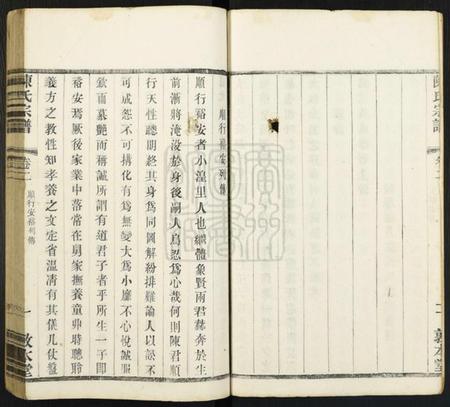 順行裕安列傳
順行裕安者小湟里人也繼體象賢雨君赫奔於生
前漸將淹沒於身後嗣人烏忍為心哉何則陳君順
行天性聰明終其身為同圖解紛排難論人以訟不
可成怨不可搆化有為無變大為小靡不心悅誠服
欽而慕艷而稱誠所謂有道君子者乎所生一子即
裕安焉厥後家業中落常在舅家撫養童丱時聰聆
義方之教性知孝養之文定省溫凊有其儀几仗盤
陳氏宗譜
卷二
順行安裕列傳
一
敦本堂
陳氏宗譜
卷二
二
敦本堂